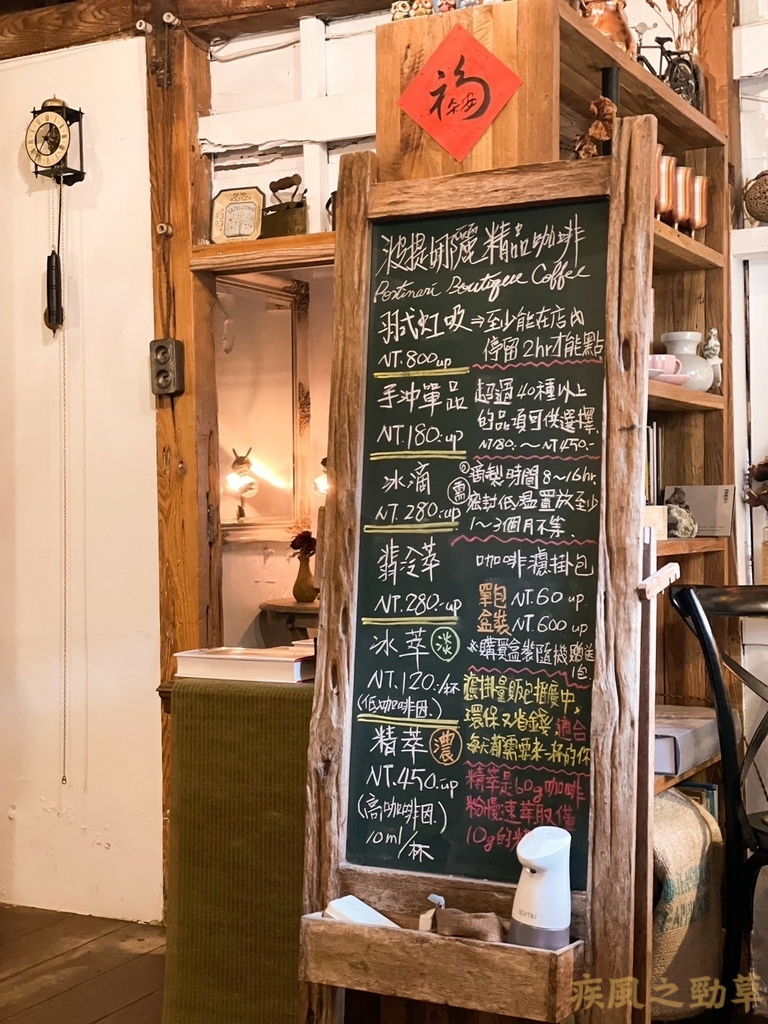 福
波提娜麗精品咖啡
Portinari Boutique Coffee
羽式虹吸⇒至少能在店內
停留2hr才能點
NT.800up
手沖單品
NT.180.-up
超過40種以上
的品項可供選擇
NT180.～NT450.-
冰滴
NT.280.-up
需
製時間8～16hr.
密封低溫置放至少
1～3個月不等.
翡冷萃
NT.280.-up
咖啡濾掛包
單包 NT.60 up.
盒裝 NT 600 up
※購買盒裝隨機贈送
1包.
冰萃 淡
NT.120./杯
(低咖啡因.)
濾掛量販包推廣中,
環保又省錢 適合
每天都需要來一杯的你
精萃 濃
NT.450.up
(高咖啡因.)
10ml/杯
精萃是60g咖啡
粉慢速萃取僅
10g的精
疾風之勁草